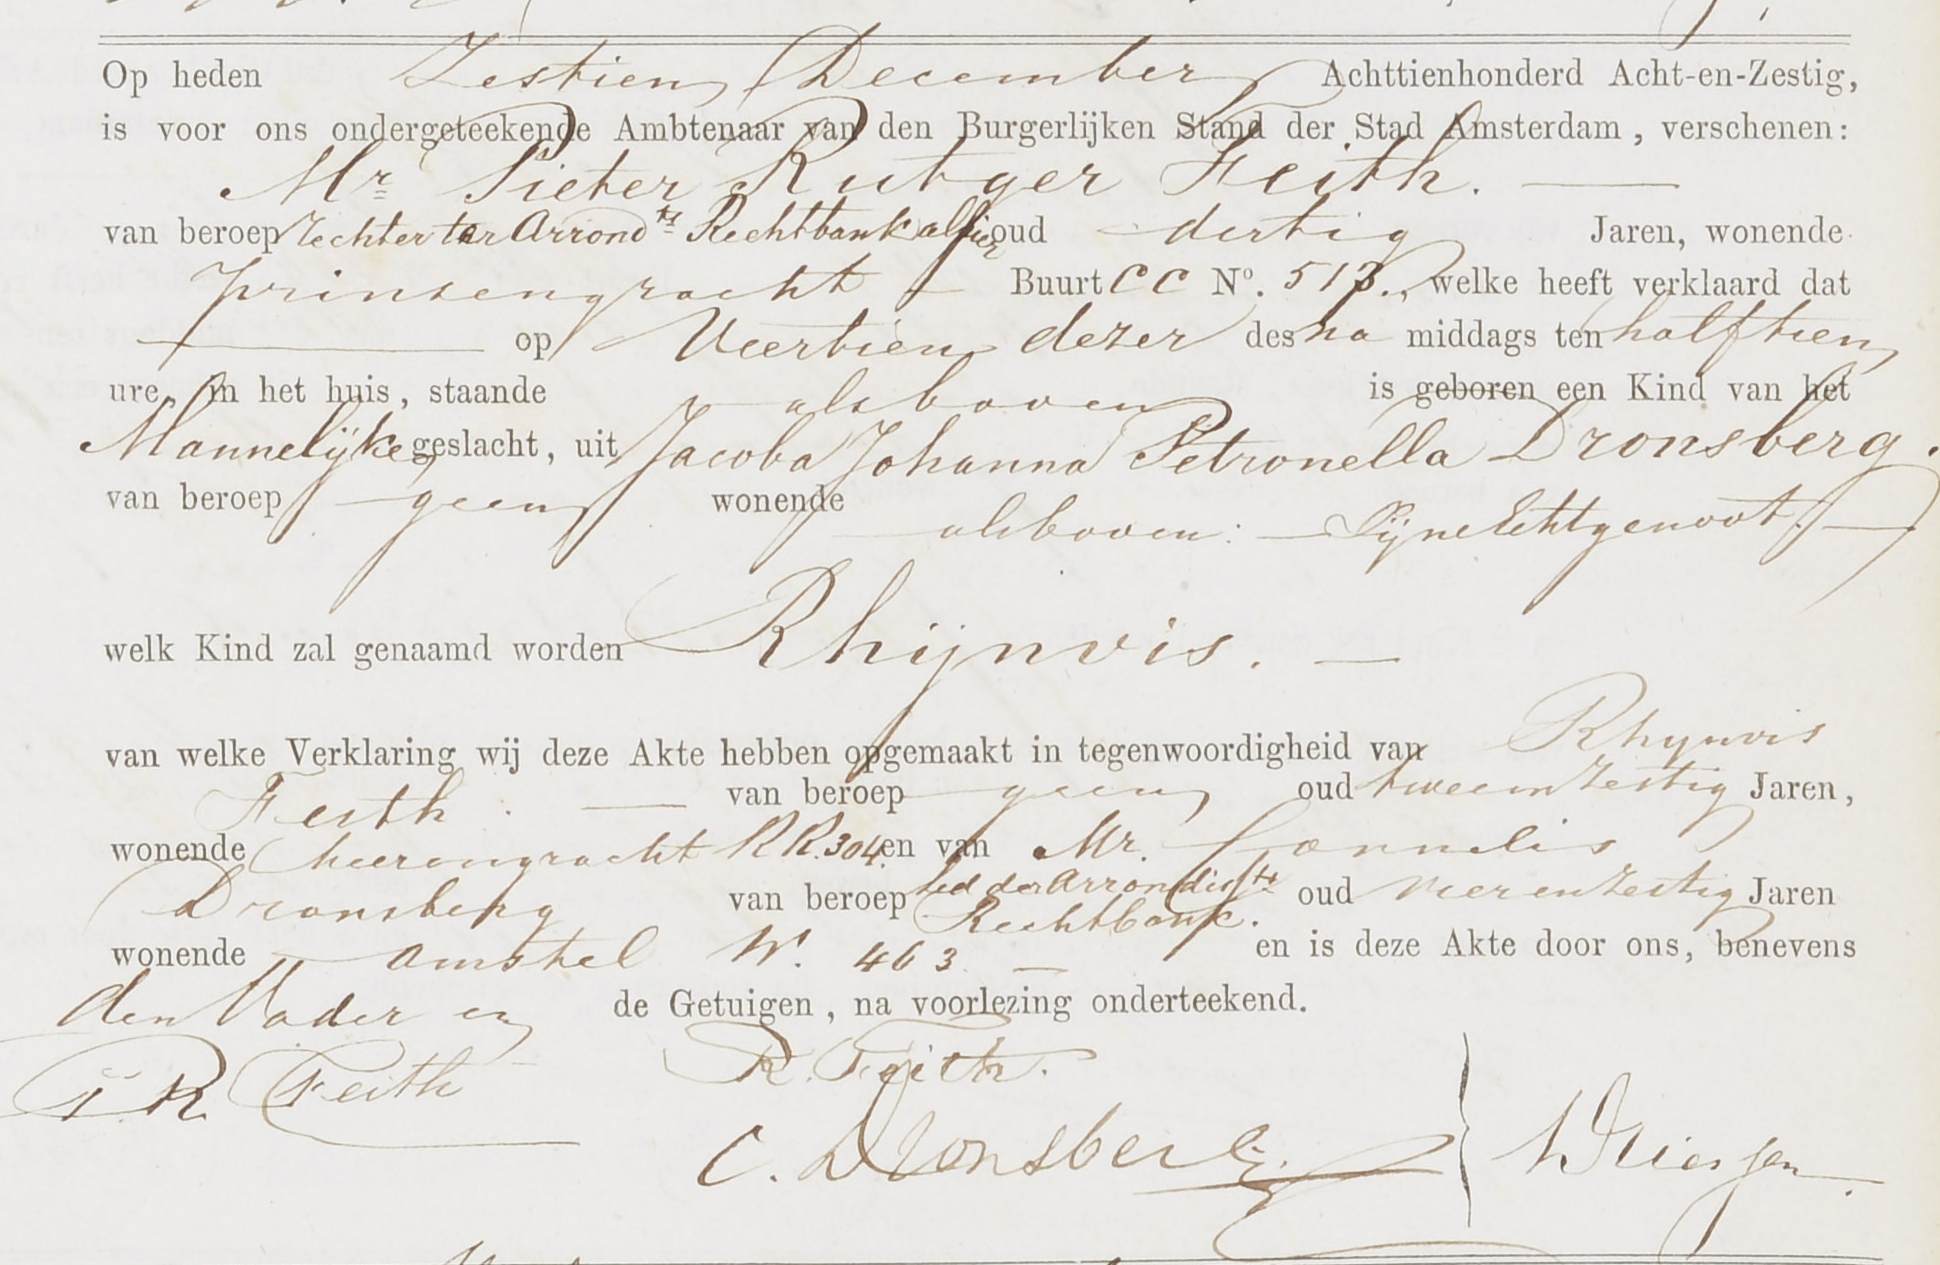 Op heden Zestien December Achttienhonderd Acht-en-Zestig,
is voor ons ondergeteekende Ambtenaar van den Burgerlijken Stand der Stad Amsterdam, verschenen:
Mr Pieter Rutger Feith.
van beroep rechter ter Arrondts Rechtbank alhier oud dertig Jaren, wonende
Prinsengracht Buurt CC No. 513., welke heeft verklaard dat
op Veertien dezer des na middags ten half tien
ure, in het huis, staande alsboven is geboren een Kind van het
Mannelijke geslacht, uit Jacoba Johanna Petronella Dronsberg.
van beroep geen wonende alsboven: Zijne Echtgenoot.
welk Kind zal genaamd worden Rhijnvis.
van welke Verklaring wij deze Akte hebben opgemaakt in tegenwoordigheid van Rhynvis
Feith. van beroep geen oud tweeenzestig Jaren,
wonende heerengracht RR. 304. en van Mr. Cornelis
Dronsberg van beroep Lid der Arrondisste Rechtbank. oud vierenzestig Jaren
wonende Amstel W. 463 en is deze Akte door ons, benevens
den Vader en de Getuigen, na voorlezing onderteekend.
P R Feith R. Feith.
C. Dronsberg.